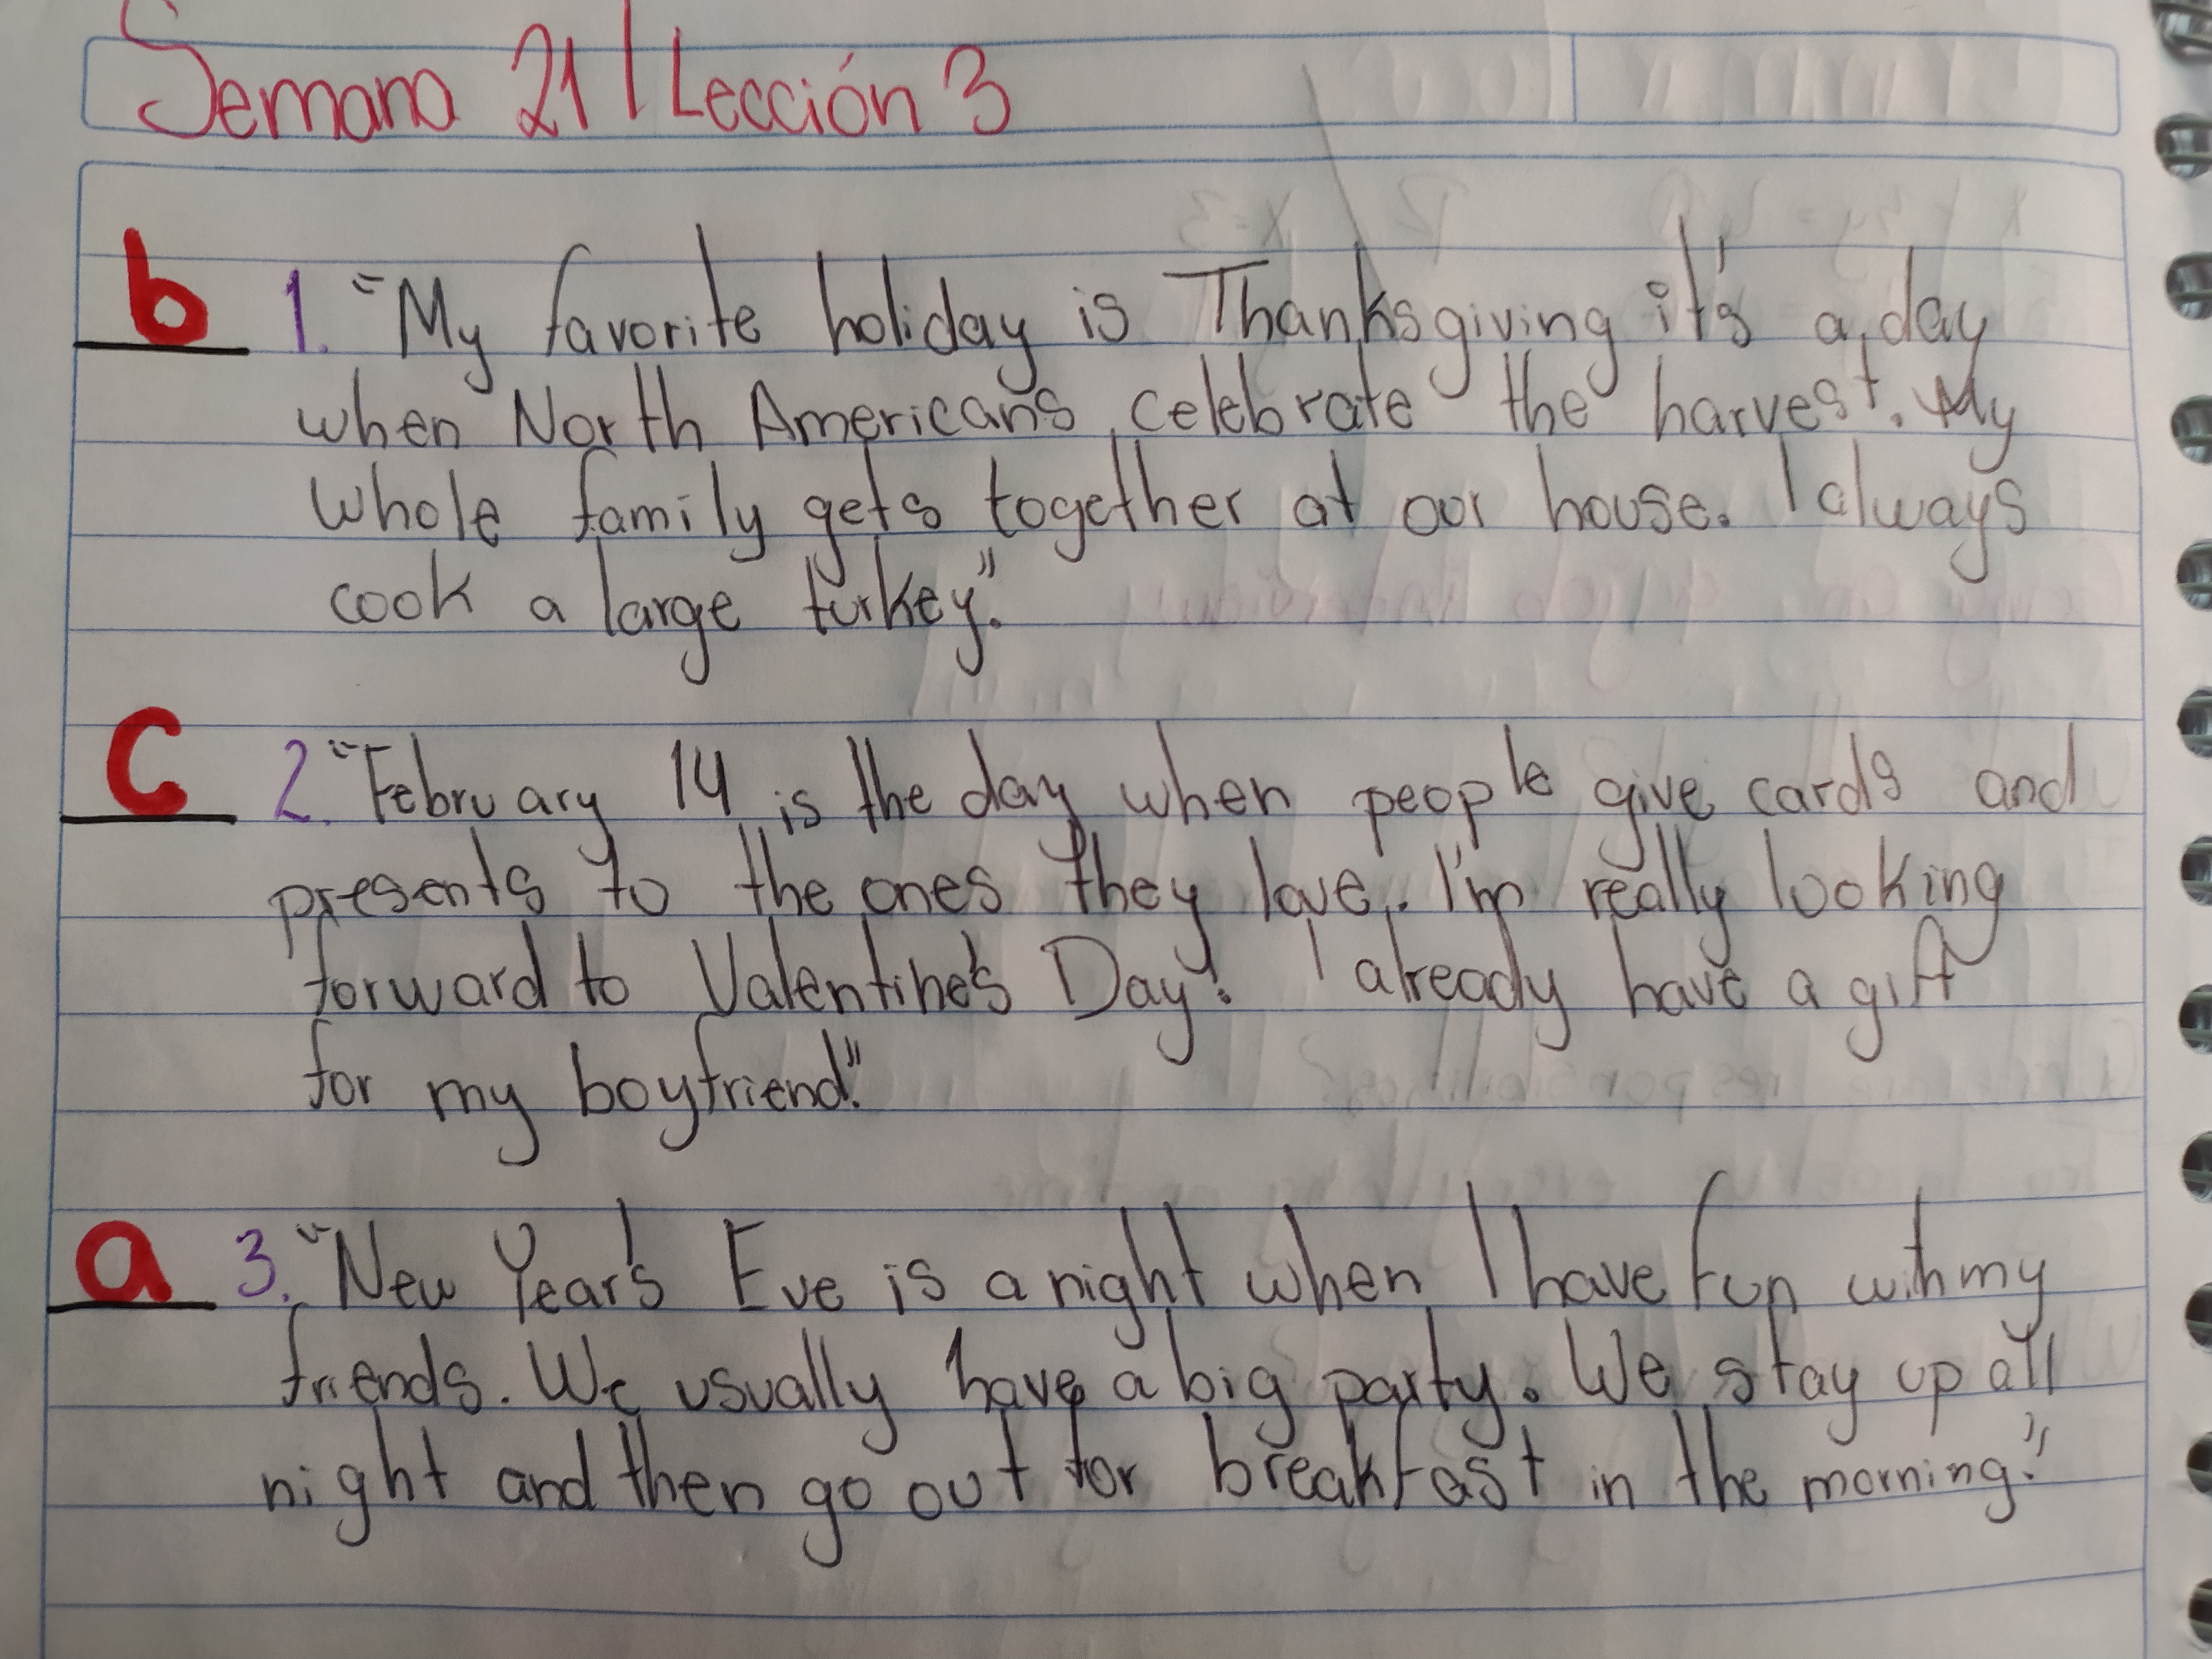 Semana 21 | Lección 3
b 1. "My favorite holiday is Thanksgiving it's a day
when North Americans celebrate the harvest. My
whole family gets together at our house. I always
cook a large turkey."
c 2. "February 14 is the day when people give cards and
presents to the ones they love. I'm really looking
forward to Valentine's Day! I already have a gift
for my boyfriend."
a 3. "New Year's Eve is a night when I have fun with my
friends. We usually have a big party. We stay up all
night and then go out for breakfast in the morning."